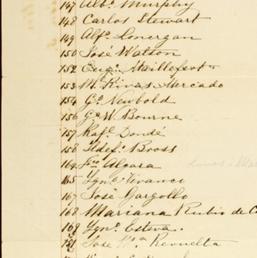 147 Alb.o Murphy
148 Carlos Stewart
149 Alf.o Lonergan
150 José Watson
152 Eug.o Maillefert
153 M. Rivas Mercado
154 G.o Newbold
156 G.o W. Bourne
157 Raf.l Dondé
158 Ildef.o Bross
164 F.co Alvara
165 Ign.o Vivanco
167 José Gargollo
168 Mariana Rubio de C
169 Ign.o Esteva.
171 José M.a Revuelta